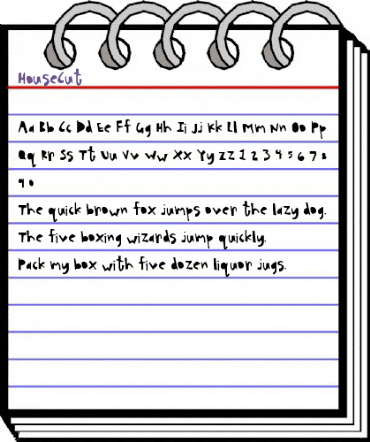 HouseCut
Aa Bb Cc Dd Ee Ff Gg Hh Ii Jj Kk Ll Mm Nn Oo Pp
Qq Rr Ss Tt Uu Vv Ww Xx Yy Zz 1 2 3 4 5 6 7 8
9 0
The quick brown fox jumps over the lazy dog.
The five boxing wizards jump quickly.
Pack my box with five dozen liquor jugs.